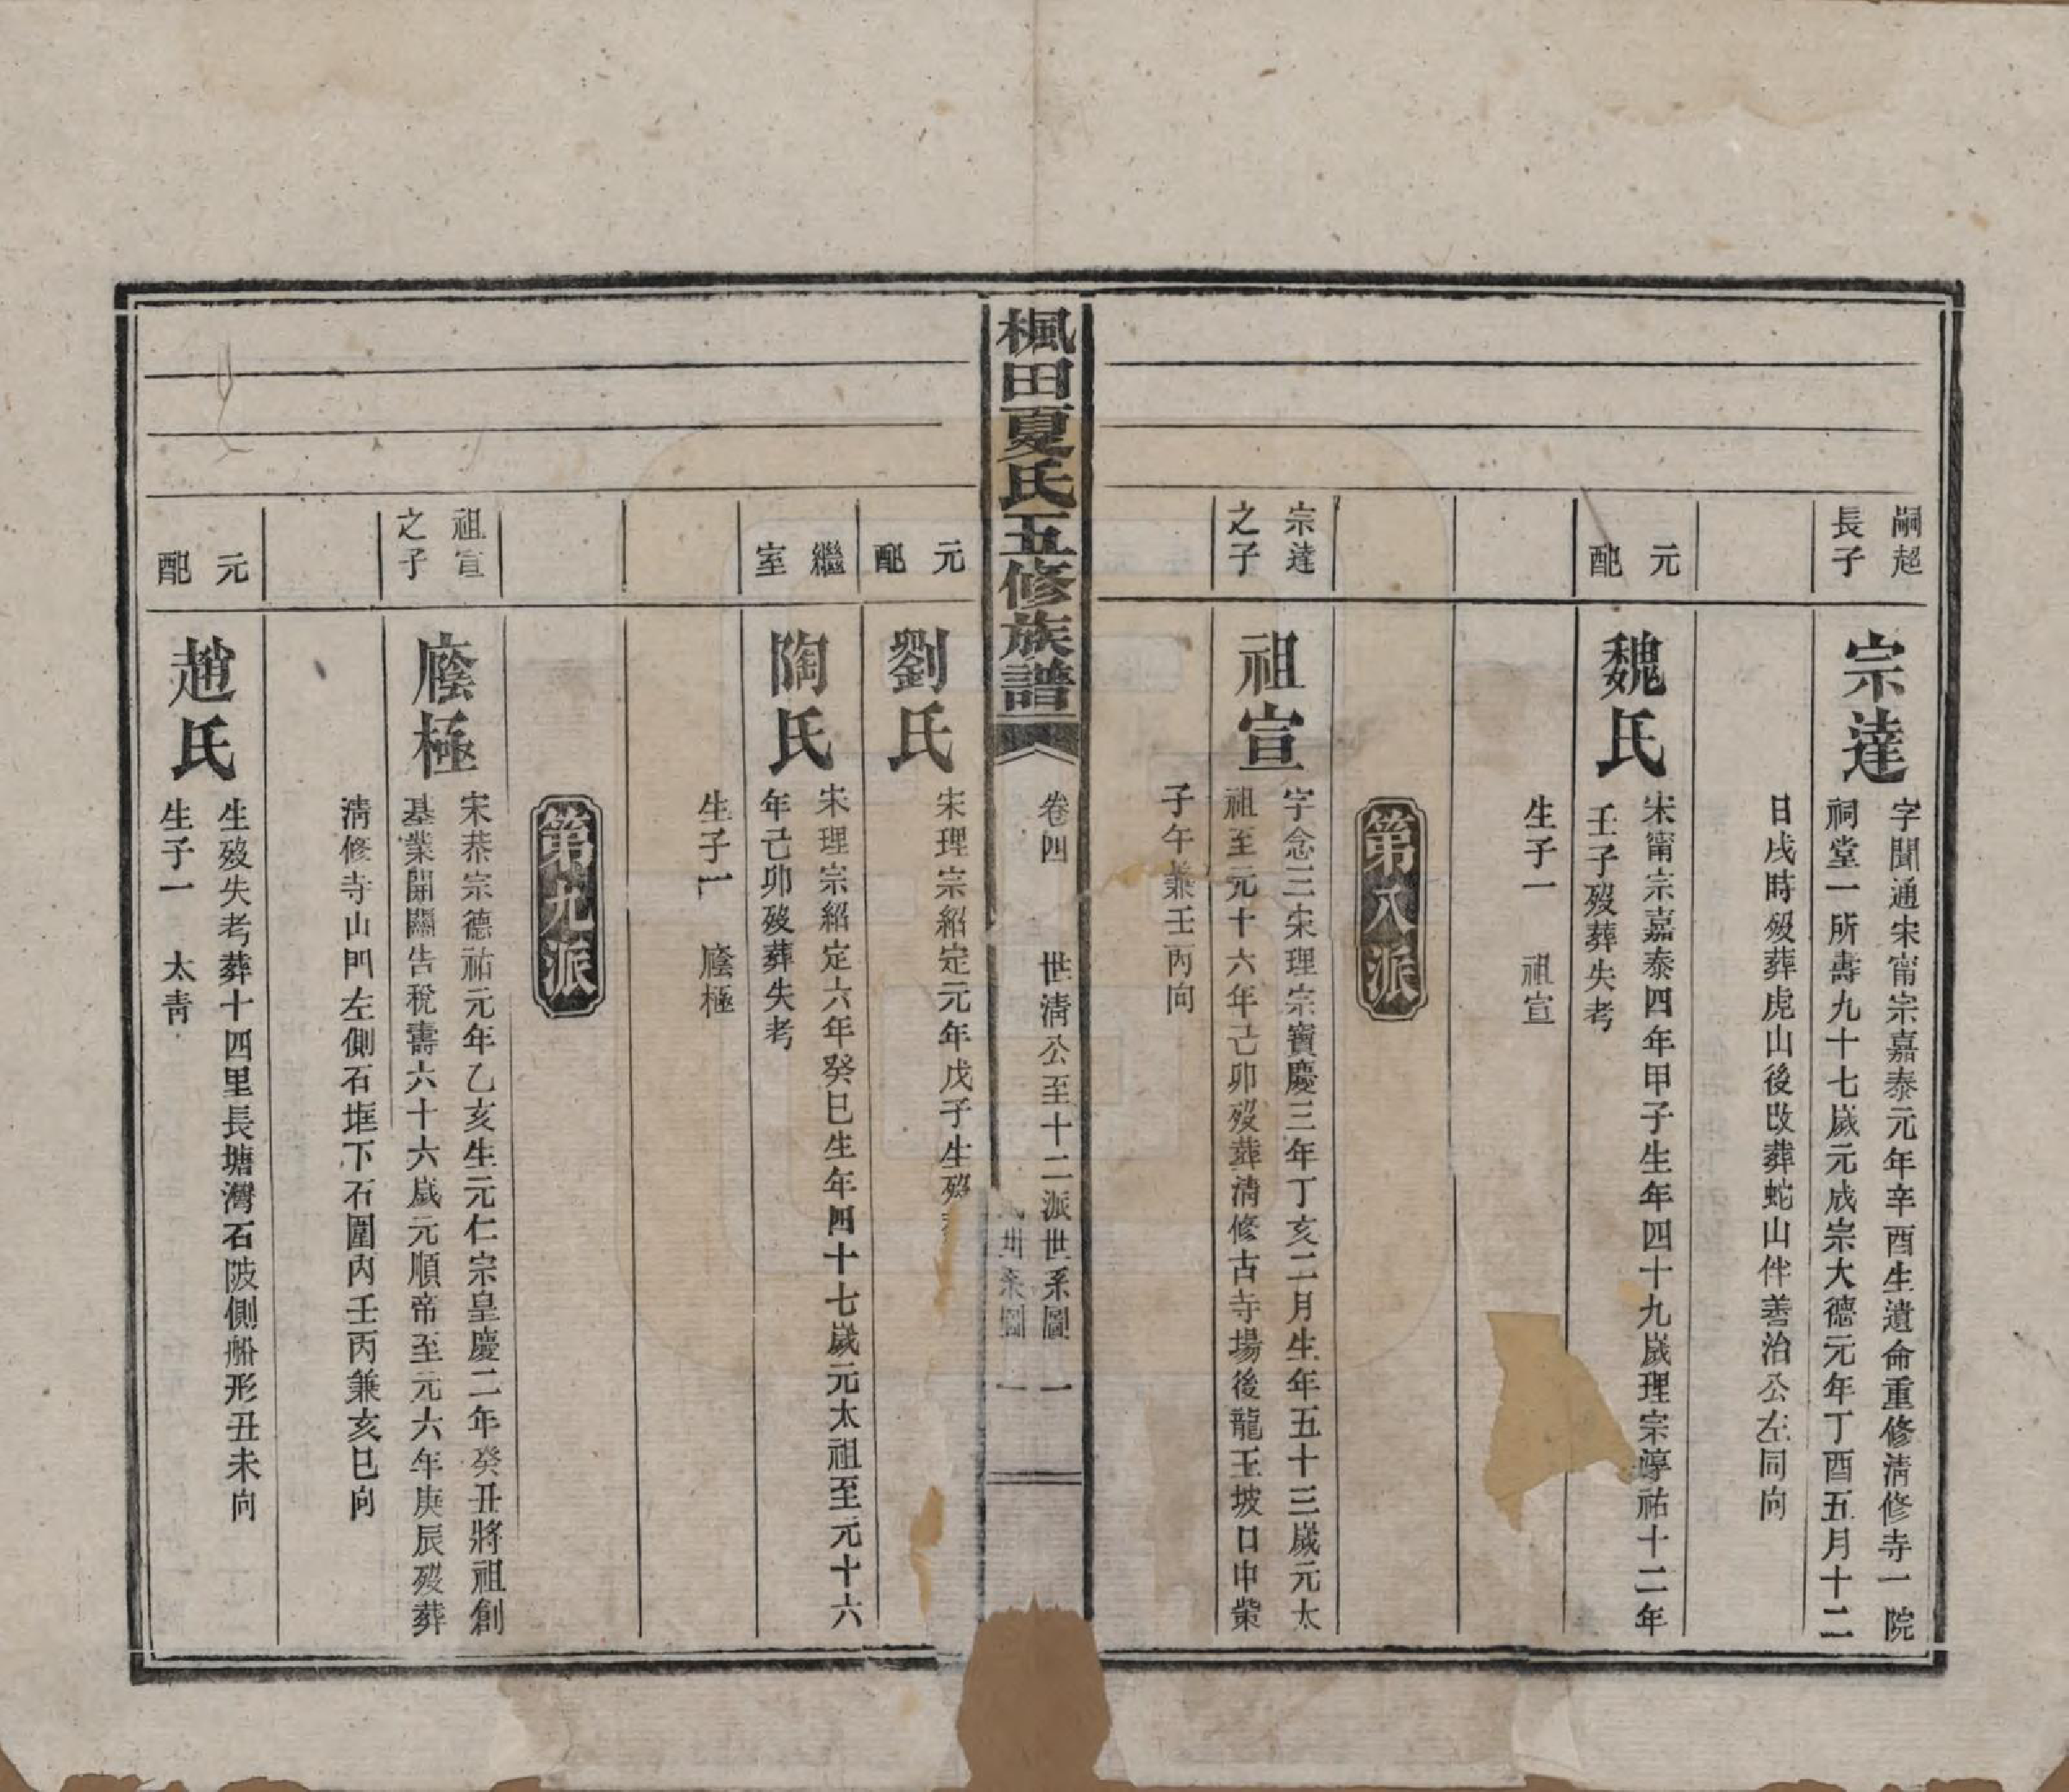 嗣超
長子
宗達
字聞通宋甯宗嘉泰元年辛酉生遺命重修清修寺一院
祠堂一所壽九十七歲元成宗大德元年丁酉五月十二
日戌時歿葬虎山後改葬蛇山伴善治公左同向
元
配
魏氏
宋甯宗嘉泰四年甲子生年四十九歲理宗淳祐十二年
壬子歿葬失考
生子一　祖宣
第八派
宗達
之子
祖宣
字念三宋理宗寶慶三年丁亥二月生年五十三歲元太
祖至元十六年己卯歿葬清修古寺場後龍王坡口中棠
子午兼壬丙向
楓田夏氏五修族譜
卷四　世清公至十二派世系圖　一
世系圖　一
元
配
劉氏
宋理宗紹定元年戊子生歿
繼
室
陶氏
宋理宗紹定六年癸巳生年四十七歲元太祖至元十六
年己卯歿葬失考
生子一　廕極
第九派
祖宣
之子
廕極
宋恭宗德祐元年乙亥生元仁宗皇慶二年癸丑將祖創
基業開關告稅壽六十六歲元順帝至元六年庚辰歿葬
清修寺山門左側石堆下石圍內壬丙兼亥巳向
元
配
趙氏
生歿失考葬十四里長塘灣石陂側船形丑未向
生子一　太青